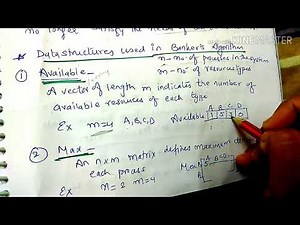 no longer satisfy the needs of
* Data structures used in Banker's Algorithm
n - no. of processes in the system
m - no. of resource types
① Available -
A vector of length m indicates the number of
available resources of each type
A B C D
Ex m=4 A, B, C, D Available
② Max -
An n×m matrix defines maximum
each process
Ex n=2 m=4
KINEMASTER